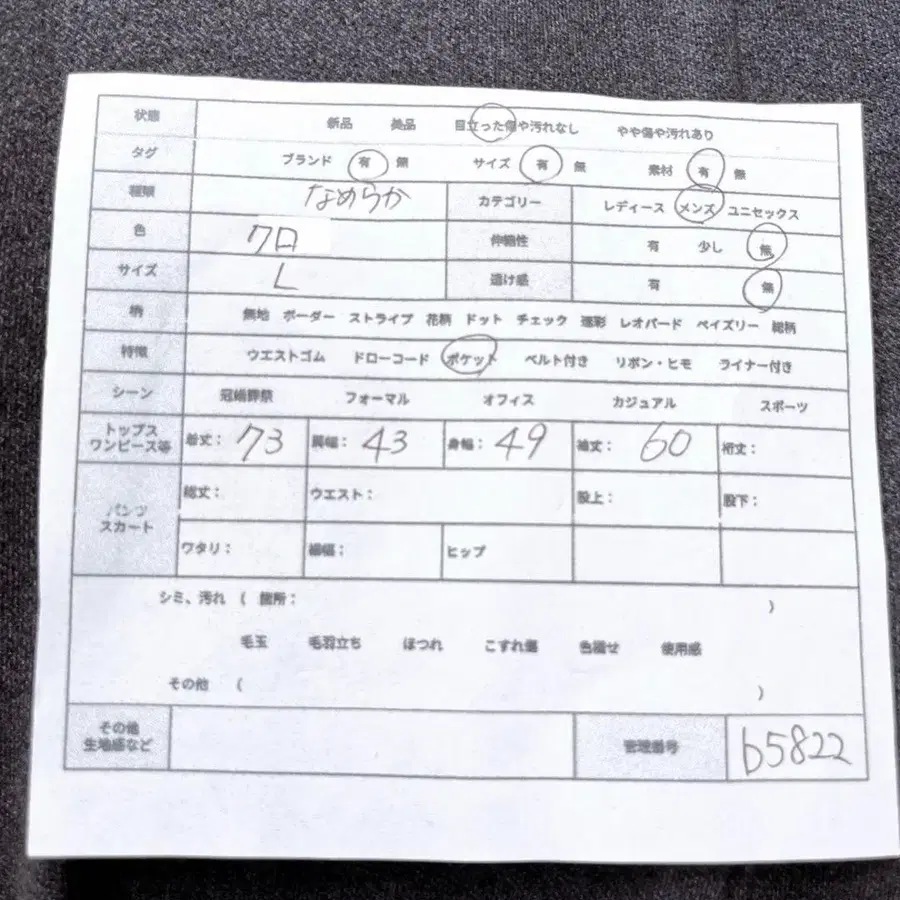 状態 新品 美品 目立った傷や汚れなし やや傷や汚れあり
タグ ブランド 有 無 サイズ 有 無 素材 有 無
種類 なめらか カテゴリー レディース メンズ ユニセックス
色 クロ 伸縮性 有 少し 無
サイズ L 透け感 有 無
柄 無地 ボーダー ストライプ 花柄 ドット チェック 迷彩 レオパード ペイズリー 総柄
特徴 ウエストゴム ドローコード ポケット ベルト付き リボン・ヒモ ライナー付き
シーン 冠婚葬祭 フォーマル オフィス カジュアル スポーツ
トップス
ワンピース等 着丈: 73 肩幅: 43 身幅: 49 袖丈: 60 裄丈:
パンツ
スカート 総丈: ウエスト: 股上: 股下:
ワタリ: 裾幅: ヒップ
シミ、汚れ ( 箇所: )
毛玉 毛羽立ち ほつれ こすれ傷 色褪せ 使用感
その他 ( )
その他
生地感など 管理番号 b5822